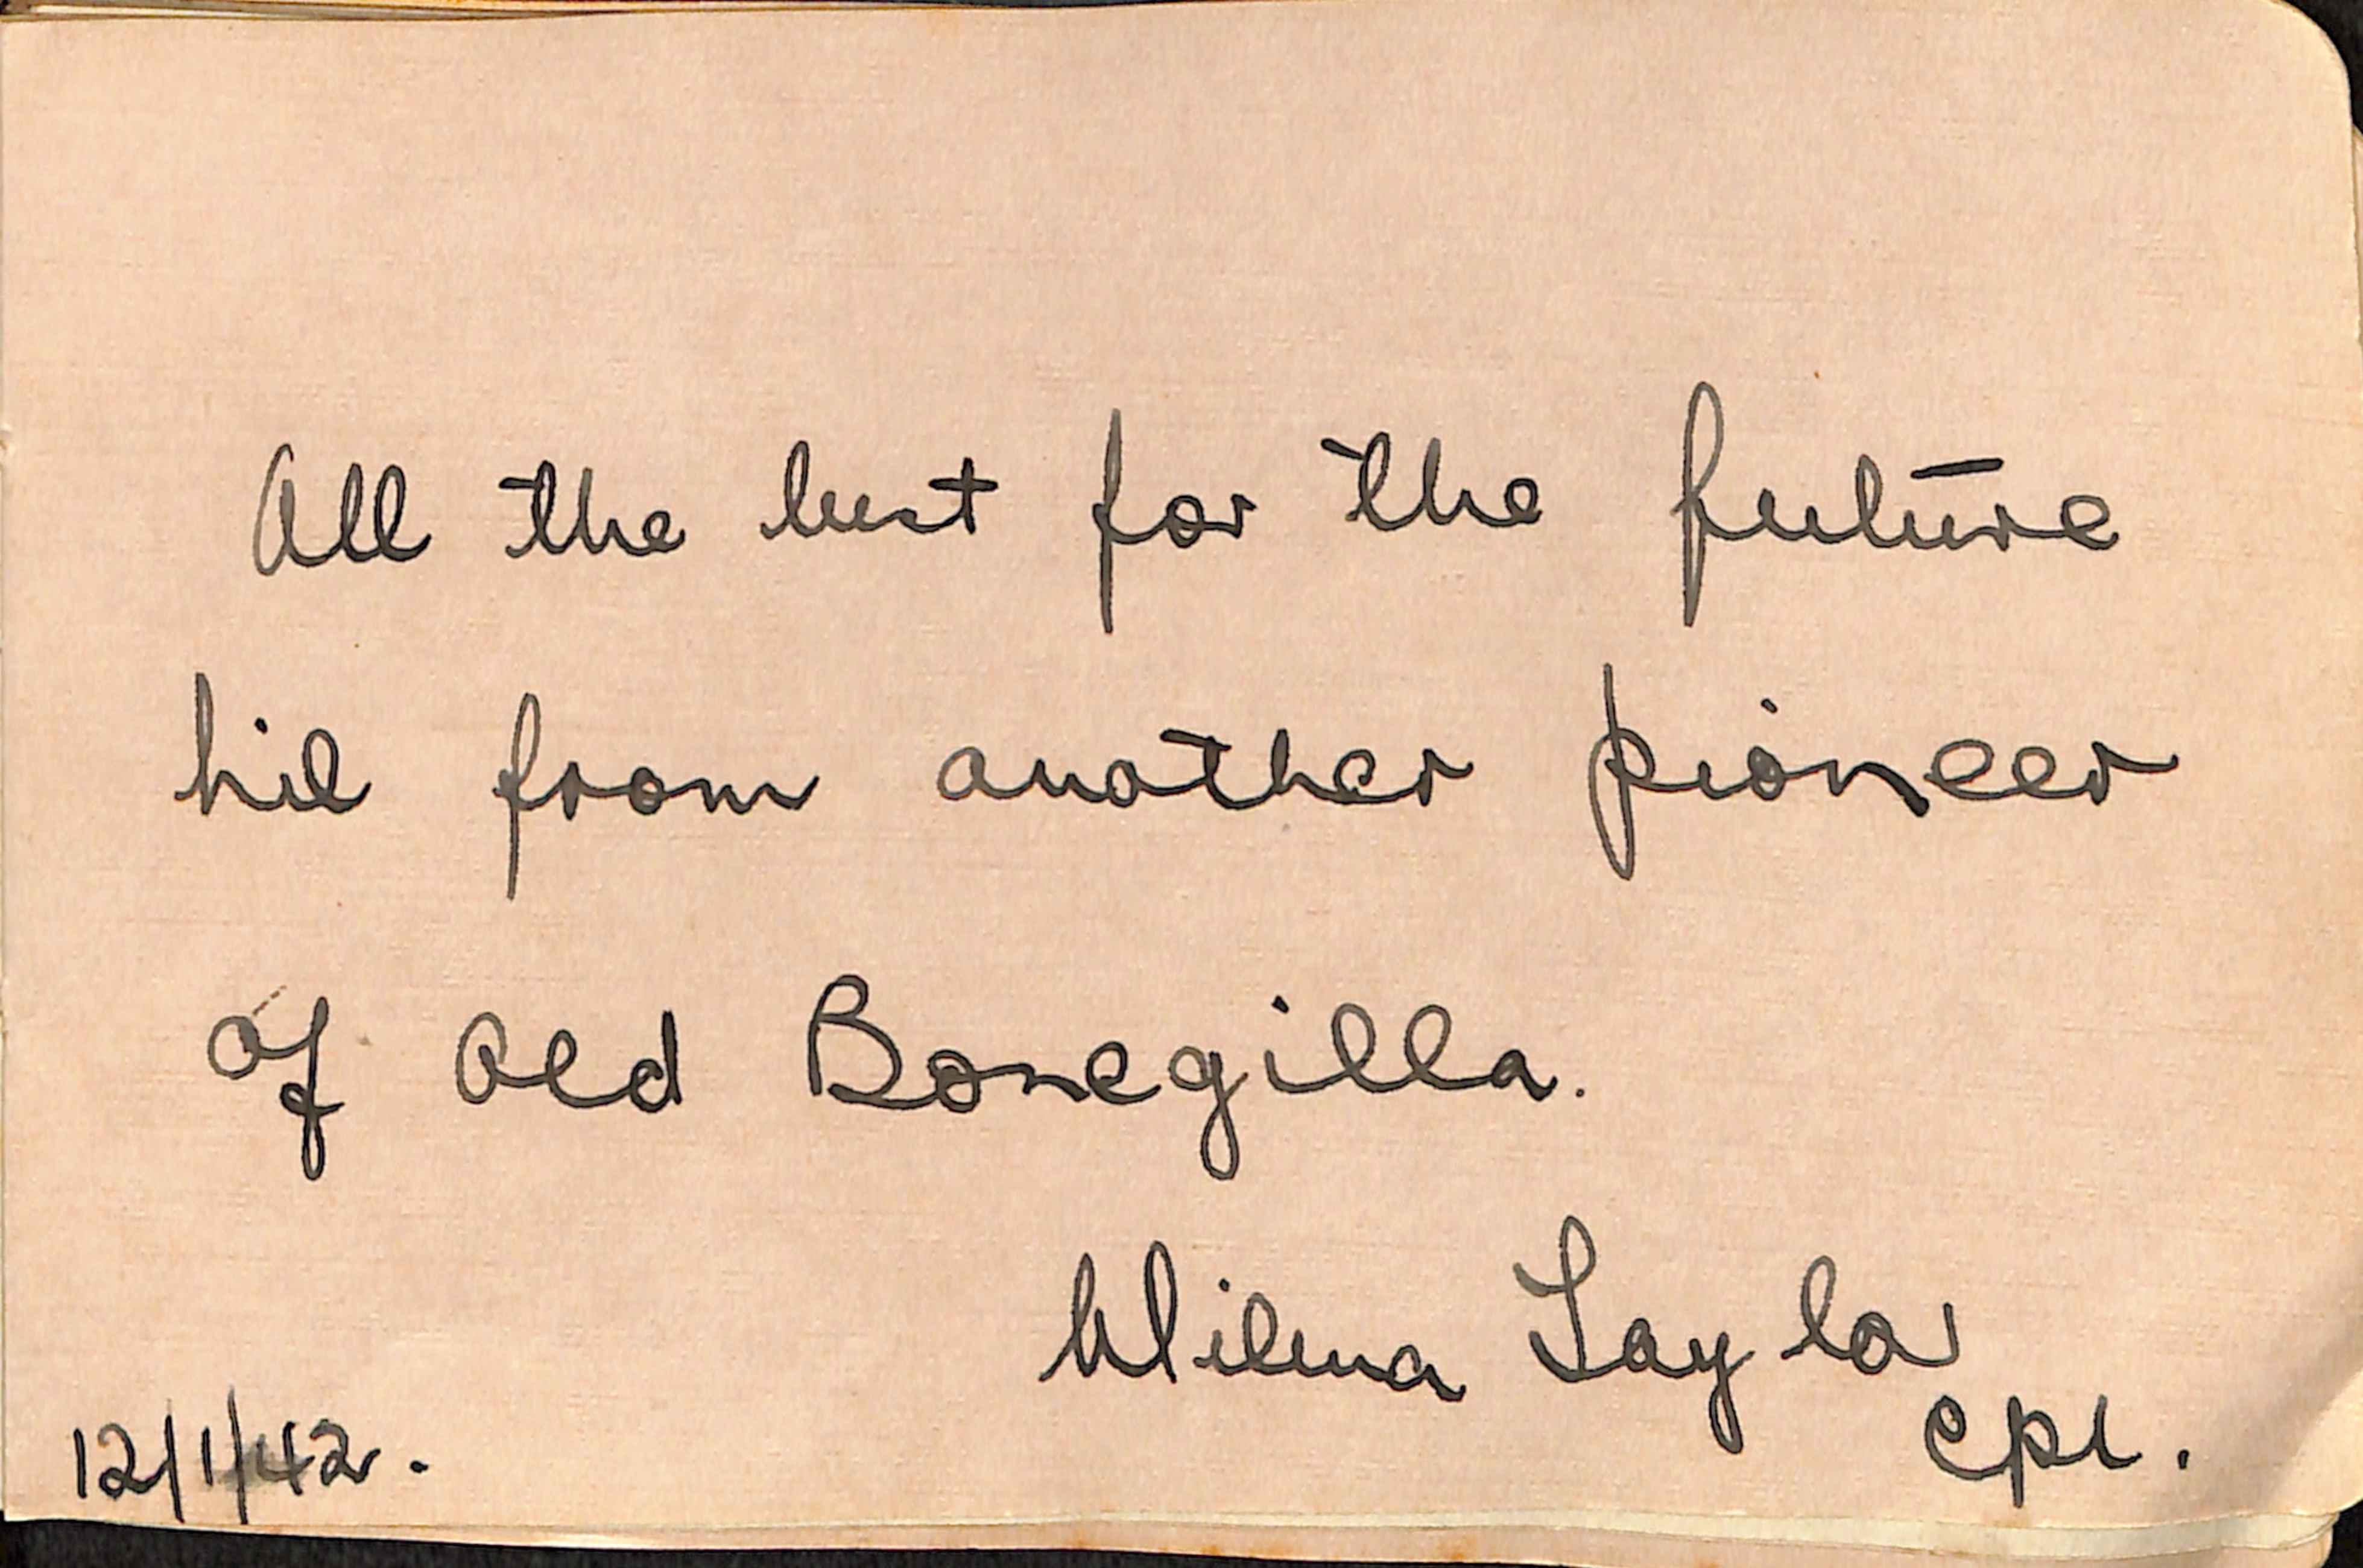 All the best for the future
hil from another pioneer
of Old Bonegilla.
Wilma Taylor
Cpl.
12/1/42.